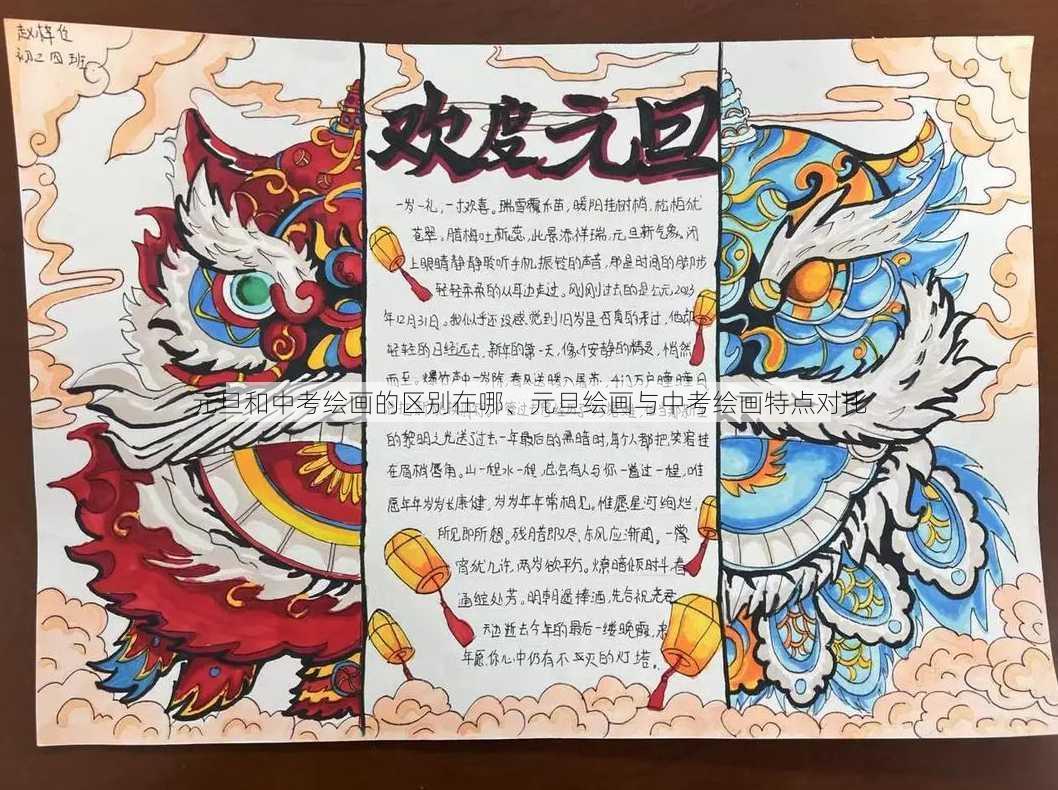 赵梓
初二四班
欢度元旦
一岁一礼，一寸欢喜。瑞雪覆禾苗，暖阳挂树梢，松柏犹
苍翠。腊梅吐新蕊，此景添祥瑞，元旦新气象。闭
上眼睛静静聆听手机振铃的声音，那是时间的脚步
轻轻柔柔的从耳边走过。刚刚过去的是公元2023
年12月31日。我似乎还没感觉到旧岁是否真的来过，他却
轻轻的已经远去，新年的第一天，像个安静的精灵，悄然
而至。爆竹声中一岁除，春风送暖入屠苏，千门万户曈曈日
元旦和中考绘画的区别在哪、元旦绘画与中考绘画特点对比
的黎明之光送了过去一年最后的黑暗时，每个人都把笑容挂
在眉梢唇角。山一程水一程，总会有人与你一道过一程，唯
愿年年岁岁长康健，岁岁年年常相见。惟愿星河绚烂，
所见即所想。残腊即又尽，东风应渐闻。一宵
宵犹几许，两岁欲平分。燎暗倾时斗，春
通绽处芳。明朝遥捧酒，先合祝老君
天边逝去今年的最后一缕晚霞，来
年愿你心中仍有不灭的灯塔。